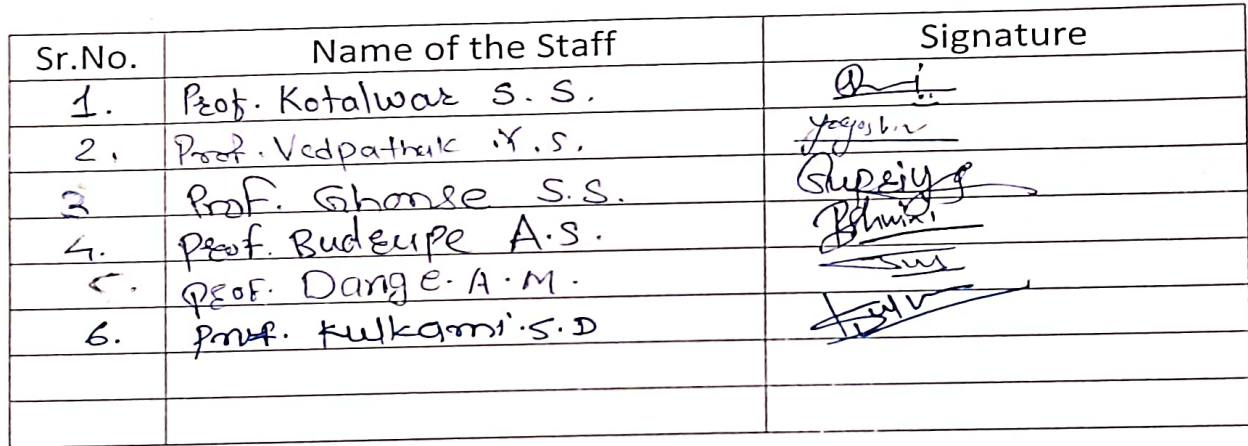 Sr.No. Name of the Staff Signature
1. Prof. Kotalwar S. S.
2. Prof. Vedpathak Y. S.
3 Prof. Ghonse S.S. Supriya
4. Prof. Budrupe A.S.
5. Prof. Dange. A.M.
6. Prof. Kulkarni S.D